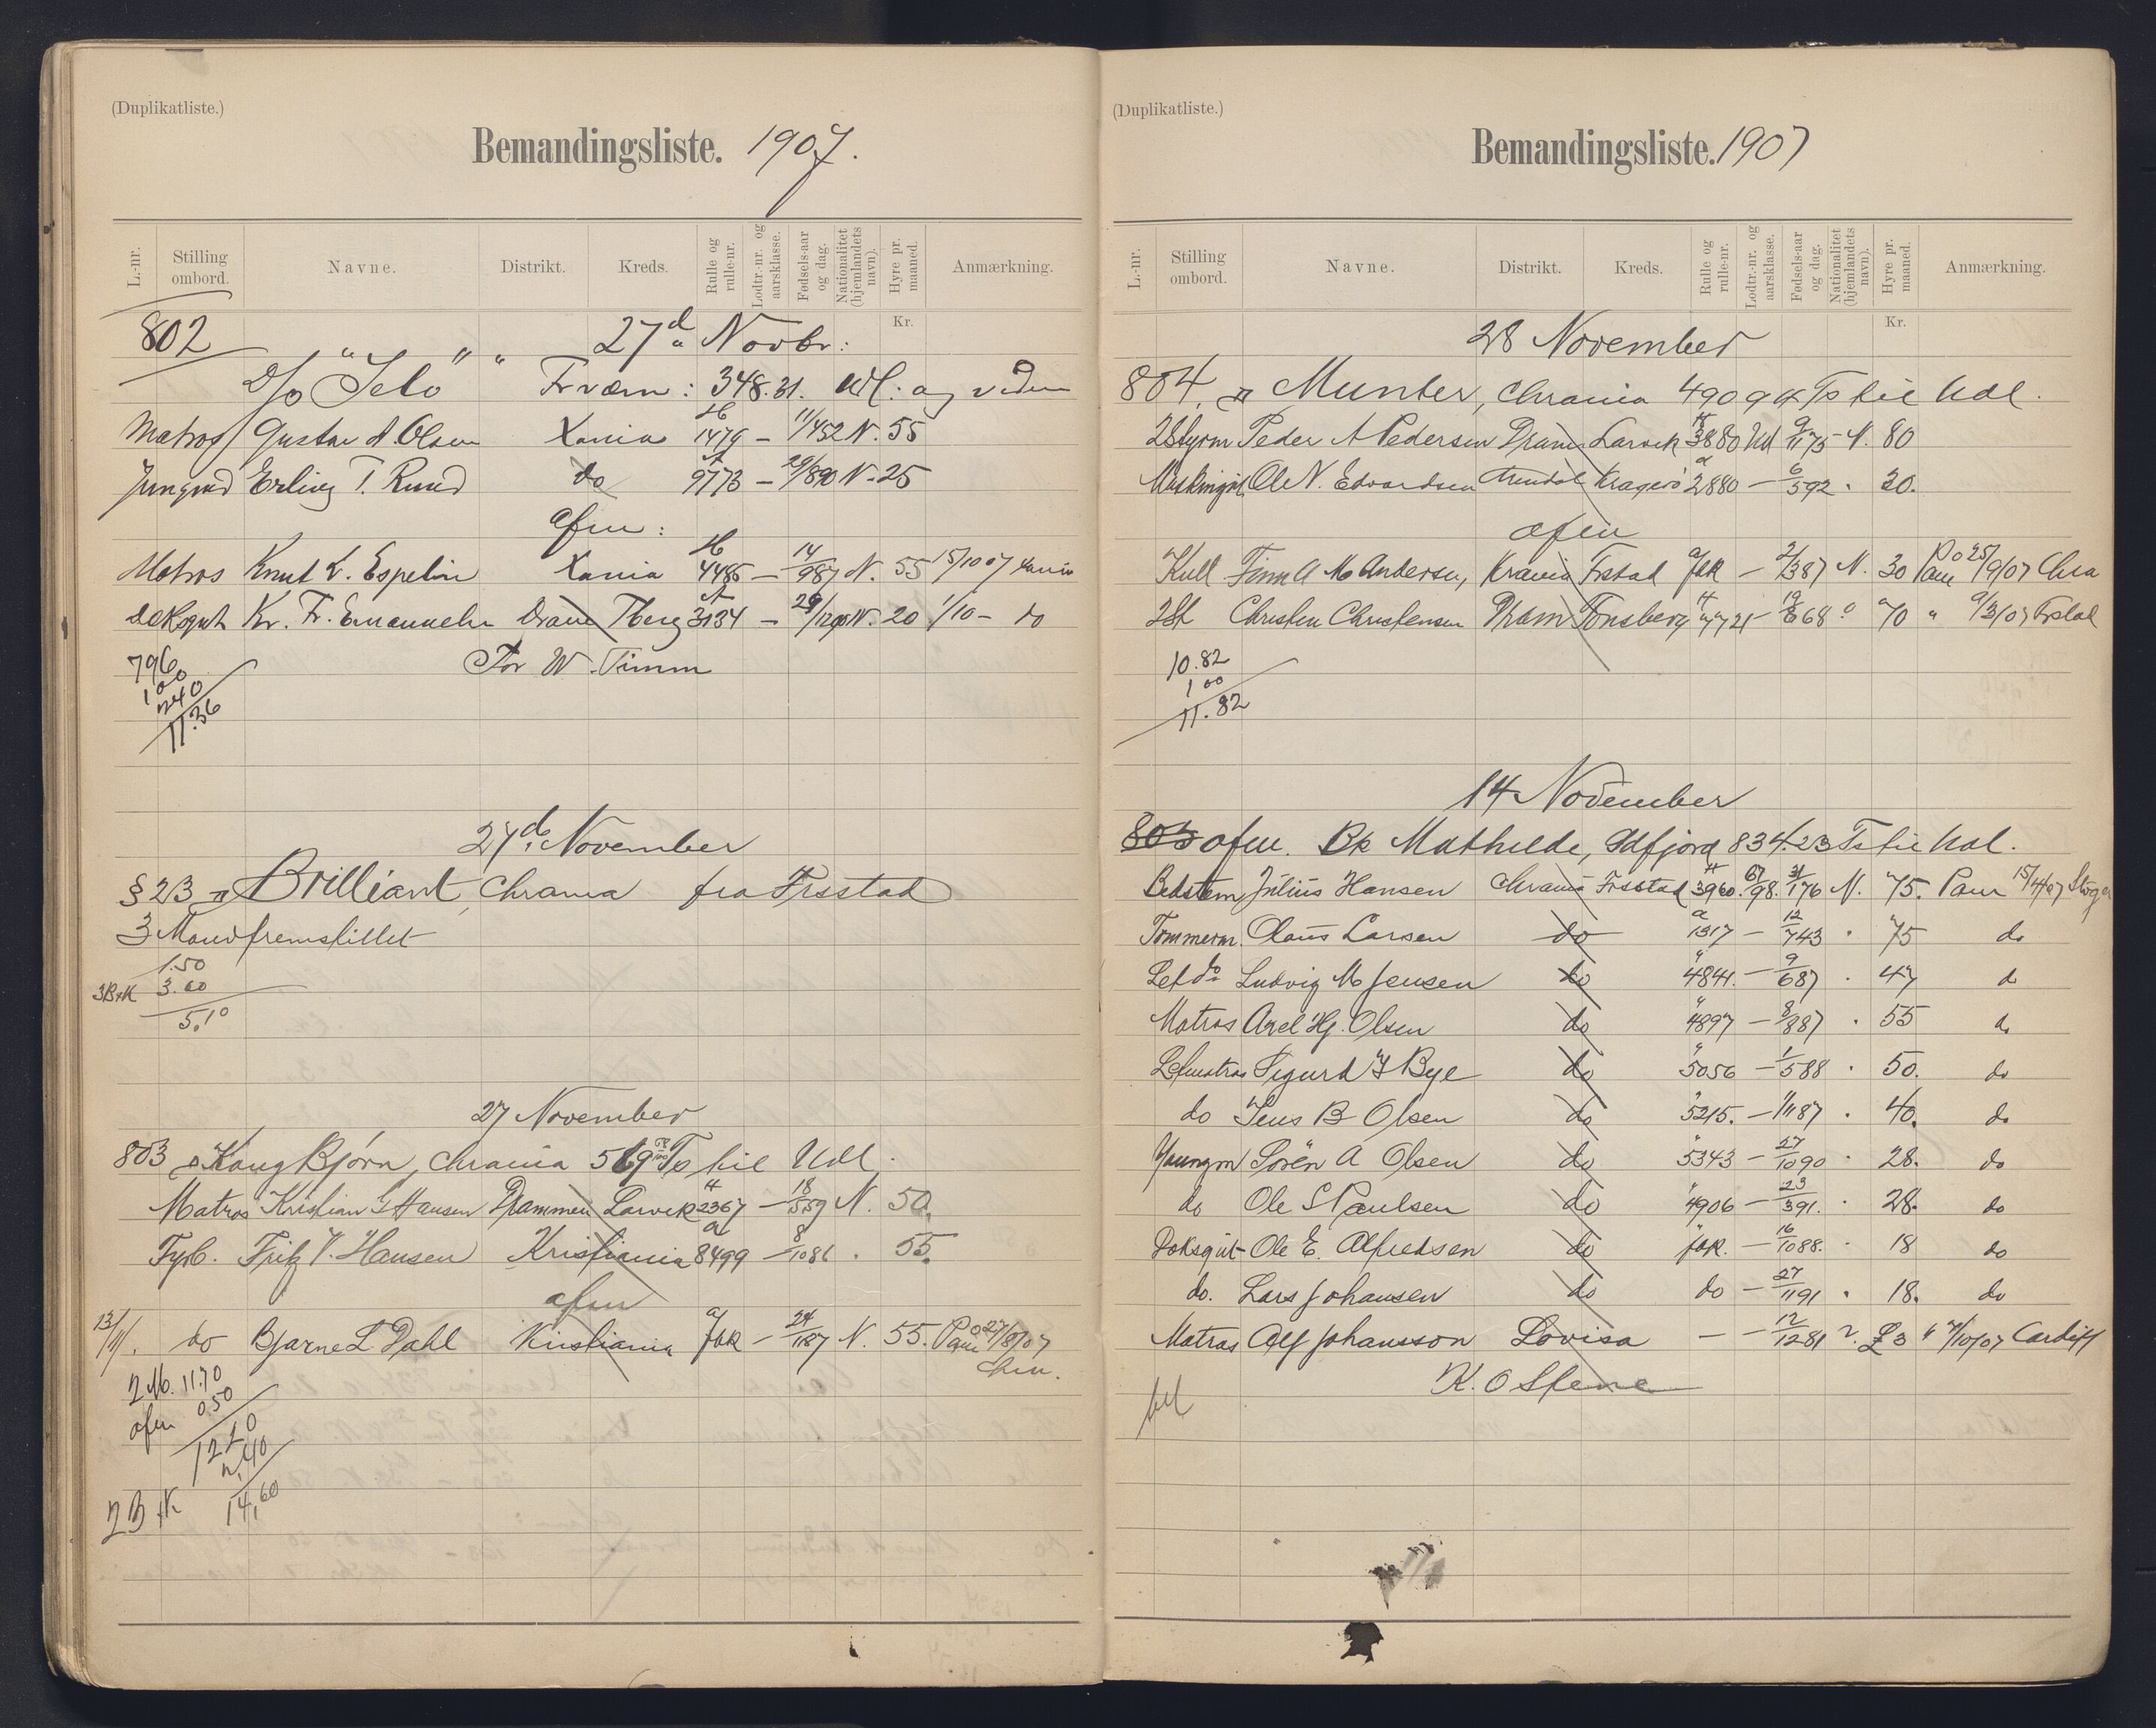 (Duplikatliste.)
Bemandingsliste. 1907.
L.-nr.
Stilling ombord.
Navne.
Distrikt.
Kreds.
Rulle og rulle-nr.
Lodtr.-nr. og aarsklasse.
Fødsels-aar og dag.
Nationalitet (hjemlandets navn).
Hyre pr. maaned.
Anmærkning.
Kr.
802 27d Novbr:
348.31.
Matros Gustav A Olsen Xania 1479 — 11/4 52 N. 55
Jungmd Erling T. Ruud do 9773 — 29/8 90 N. 25
afm:
Matros Knut K. Espelin Xania 4485 — 14/9 87 N. 55 15/10 07 Xania
Kr. Fr. Tberg 3134 — 20 1/10 — do
For W. Timm
796
100
240
11.36
27d November
§ 23 Brilliant, Chrania fra Frsstad
3 Mand fremstillet
1.50
3B+K 3.60
5.10
27 November
803 Kong Bjørn, Chrania 569 Ts til Udl.
Matros Kristian Hansen Drammen Larvik 2367 — 18/5 59 N. 50.
Fyrb. Fritz V. Hansen Kristiania 8499 — 8/10 86 . 55.
afm
13/11. do Bjarne L Dahl Kristiania fbk — 24/11 87 N. 55. Paam 27/8/07
Chra.
2 M. 11.70
afm 0.50
12.20
2.40
2B+K 14,60
(Duplikatliste.)
Bemandingsliste. 1907
L.-nr.
Stilling ombord.
Navne.
Distrikt.
Kreds.
Rulle og rulle-nr.
Lodtr.-nr. og aarsklasse.
Fødsels-aar og dag.
Nationalitet (hjemlandets navn).
Hyre pr. maaned.
Anmærkning.
Kr.
28 November
804. Munter, Chrania 490 94 Ts til Udl.
2 Styrm Peder A Pedersen Dram Larvik 3880 Ud 9/11 75 N. 80
Ole N. Edvardsen Arendal Kragerö 2880 — 6/5 92 . 30.
afm
Kull Finn A M Andersen, Krania Frstad fbk — 2/3 87 N. 30 Paam 25/9/07 Chra
2 St Christen Christensen Dram Tönsberg 7721 — 68 70 " 9/3/07 Frstad
10.82
1 00
11.82
14 November
805 afm. Bk Mathilde, Idfjord 834.23 Ts til Udl.
Bedstem Julius Hansen Chrania Frsstad 3960. 67/98. 31/1 76 N. 75. Paam 15/4/07
Tømmerm. Olaus Larsen do 1317 — 12/7 43 . 75 do
Let do Ludvig M Jensen do 4841. — 9/6 87 . 47 do
Matros Axel Hj. Olsen do 4897 — 8/8 87 . 55 do
Letmatros Sigurd Bye do 5056 — 1/5 88 . 50. do
do Jens B Olsen do 5215. — 1/11 87 . 40. do
Youngm Sören A Olsen do 5343 — 27/10 90 . 28. do
do Ole S Paulsen do 4906 — 23/3 91. . 28. do
Doksgut Ole E. Alfredsen do fbk. — 16/10 88. . 18 do
do. Lars Johansen do do — 27/11 91 . 18. do
Matros Alf Johansson Lovisa — — 12/12 81 £3 " 7/10/07 Cardiff
K. O Stene